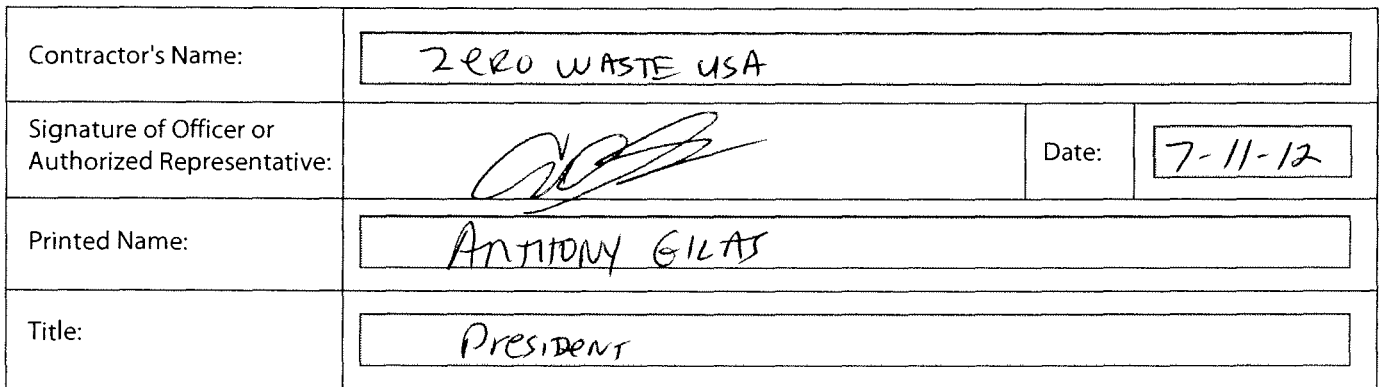 Contractor's Name: ZERO WASTE USA
Signature of Officer or
Authorized Representative:
Date: 7-11-12
Printed Name: ANTHONY
Title: PresIDeNT